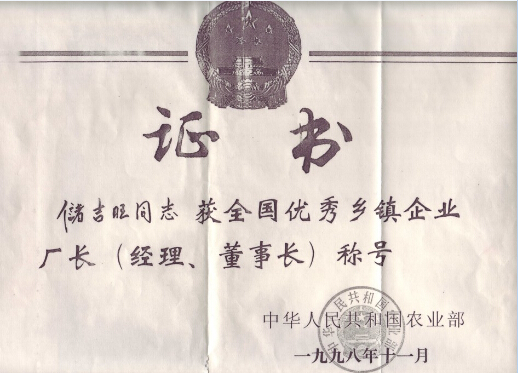 证书
储吉旺同志 获全国优秀乡镇企业
厂长（经理、董事长）称号
中华人民共和国农业部
一九九八年十一月
中华人民共和国农业部